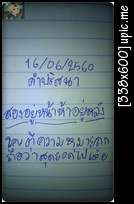 16/06/2560
คำปริศนา
สองอยู่หน้าห้าอยู่หลัง
ของตีความหมายถูก
ถือว่าสุดยอดไปเลย
[338x600] upic.me